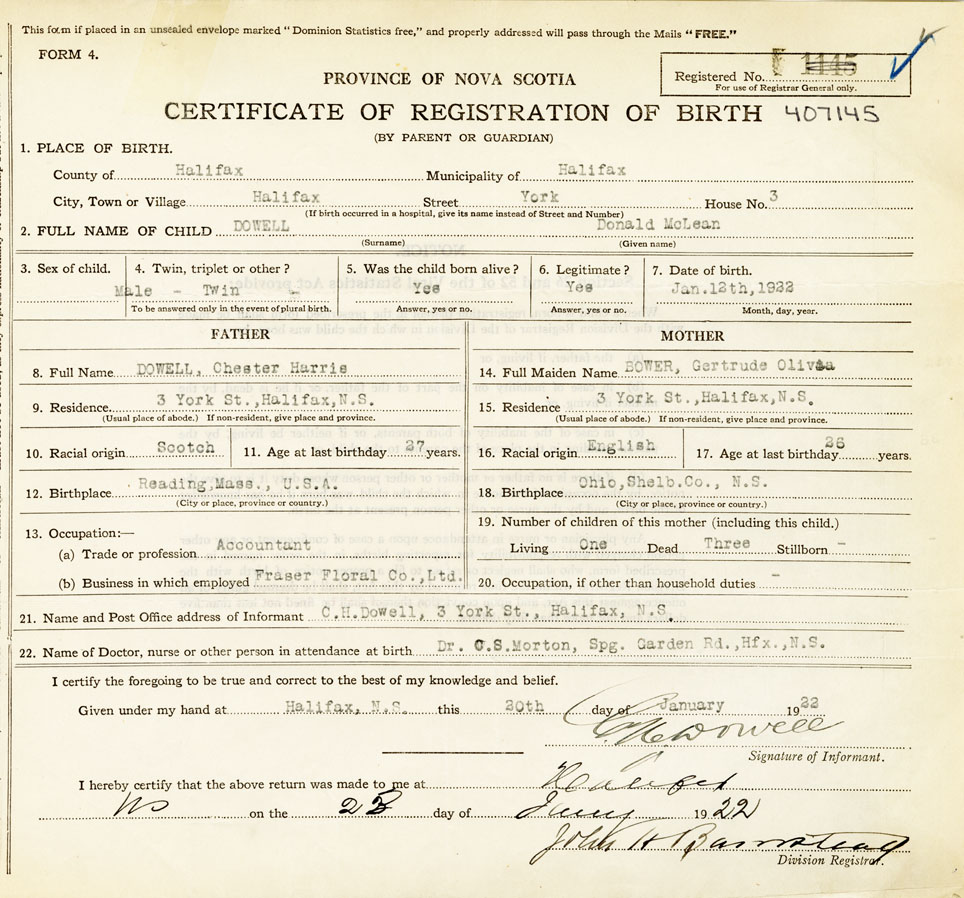 This form if placed in an unsealed envelope marked "Dominion Statistics free," and properly addressed will pass through the Mails "FREE."
FORM 4.
Registered No. 1145
For use of Registrar General only.
PROVINCE OF NOVA SCOTIA
CERTIFICATE OF REGISTRATION OF BIRTH 407145
(BY PARENT OR GUARDIAN)
1. PLACE OF BIRTH.
County of Halifax Municipality of Halifax
City, Town or Village Halifax Street York House No. 3
(If birth occurred in a hospital, give its name instead of Street and Number)
2. FULL NAME OF CHILD DOWELL Donald McLean
(Surname) (Given name)
3. Sex of child. 4. Twin, triplet or other? 5. Was the child born alive? 6. Legitimate? 7. Date of birth.
Male - Twin - Yes Yes Jan.12th,1922
To be answered only in the event of plural birth. Answer, yes or no. Answer, yes or no. Month, day, year.
FATHER MOTHER
8. Full Name DOWELL, Chester Harris
14. Full Maiden Name BOWER, Gertrude Olivia
9. Residence 3 York St.,Halifax,N.S.
(Usual place of abode.) If non-resident, give place and province.
15. Residence 3 York St.,Halifax,N.S.
(Usual place of abode.) If non-resident, give place and province.
10. Racial origin Scotch 11. Age at last birthday 27 years.
16. Racial origin English 17. Age at last birthday 26 years.
12. Birthplace Reading,Mass., U.S.A.
(City or place, province or country.)
18. Birthplace Ohio,Shelb.Co., N.S.
(City or place, province or country.)
13. Occupation:—
(a) Trade or profession Accountant
(b) Business in which employed Fraser Floral Co.,Ltd.
19. Number of children of this mother (including this child.)
Living One Dead Three Stillborn -
20. Occupation, if other than household duties -
21. Name and Post Office address of Informant C.H.Dowell, 3 York St., Halifax, N.S.
22. Name of Doctor, nurse or other person in attendance at birth Dr. C.S.Morton, Spg. Garden Rd.,Hfx.,N.S.
I certify the foregoing to be true and correct to the best of my knowledge and belief.
Given under my hand at Halifax, N.S. this 20th day of January 1922
C H Dowell
Signature of Informant.
I hereby certify that the above return was made to me at Halifax
NS on the 23 day of Jany 1922
John H Barnstead
Division Registrar.